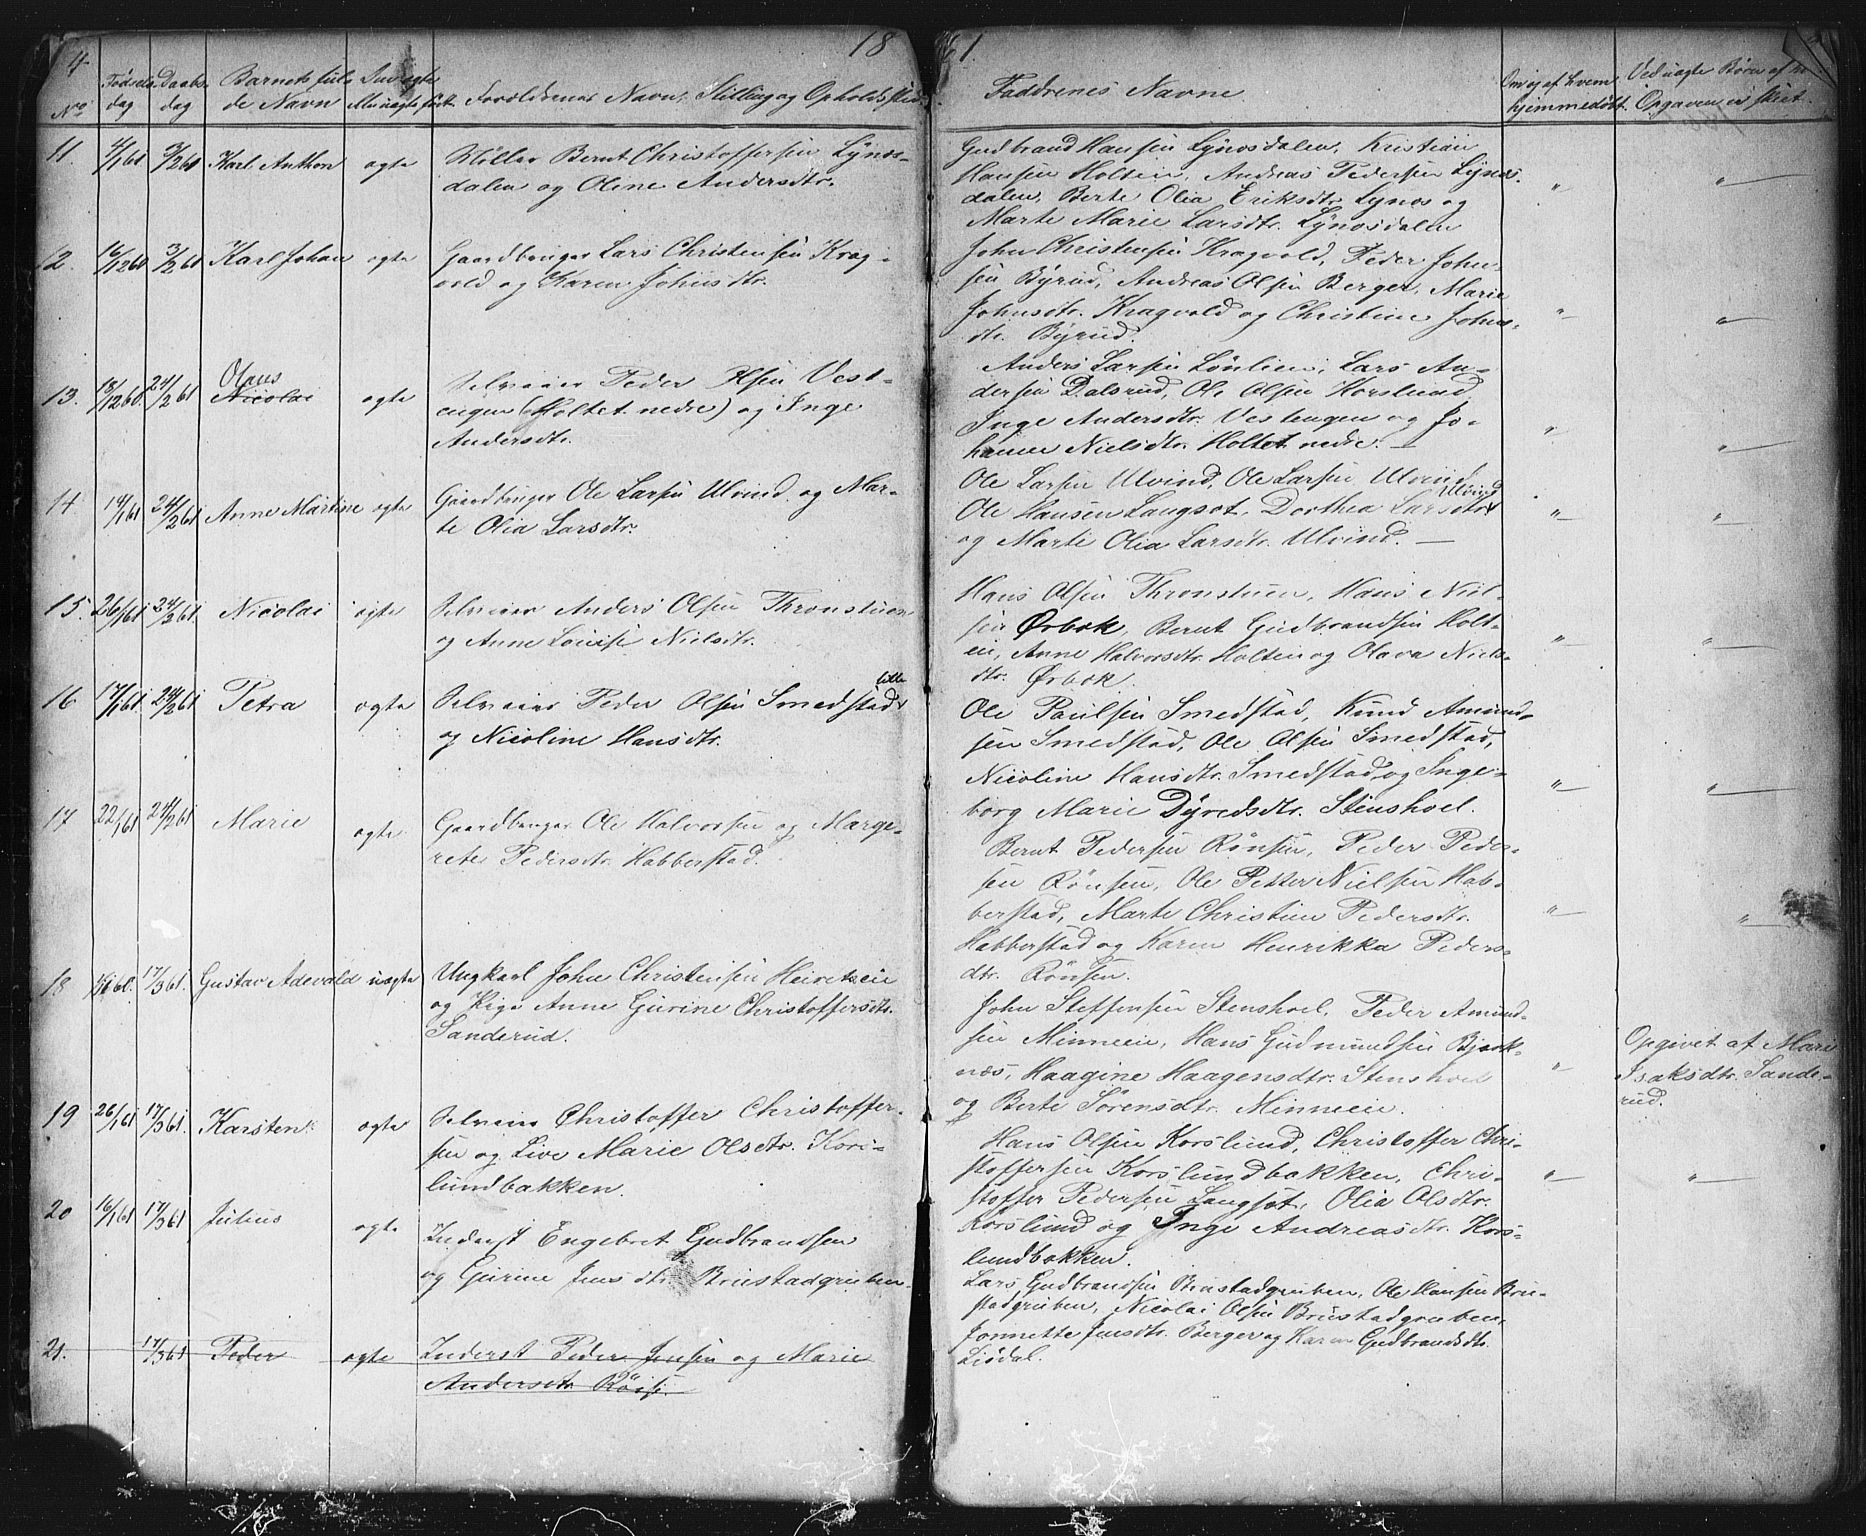 4
18
61.
No
Fødsels
dag
Daabs
dag
Barnets ful-
de Navn
Om ægte
el. uægte født.
Forældrenes Navn, Stilling og Opholdssted.
Faddrenes Navne
Om og af hvem
hjemmedøbt.
Ved uagte Børn af hv.
Opgaven er skeet.
11. 4/1 61 3/2 61 Karl Anthon ægte Møller Bernt Christoffersen Lynos-
dalen og Oline Andersdtr.
Gudbrand Hansen Lynosdalen, Kristian
Hansen Holten, Andreas Pedersen Lynos-
dalen, Berte Olia Eriksdtr. Lynos og
Marte Marie Larsdtr. Lynosdalen
12. 16/12 60 3/2 61 Karl Johan ægte Gaardbruger Lars Christensen Krag-
vold og Karen Johnsdtr.
John Christensen Kragvold, Peder John-
sen Byrud, Andreas Olsen Berger, Marie
Johnsdtr. Kragvold og Christine Johns-
dtr. Byrud.
13. 13/12 60. 24/2 61 Olaus
Nicolai ægte Selveier Peder Olsen Vest-
engen (Holtet nedre) og Inge
Andersdtr.
Anders Larsen Lønlien, Lars An-
dersen Dalsrud, Ole Olsen Korslund,
Inge Andersdtr. Vestengen og Jo-
hanne Nielsdtr. Holtet nedre. —
14 14/1 61 24/2 61 Anne Martine ægte Gaardbruger Ole Larsen Ulvind og Mar-
te Olia Larsdtr.
Ole Larsen Ulvind, Ole Larsen Ulvind
Ole Hansen Langset, Dorthea Larsdtr. Ulvind
og Marte Olia Larsdtr. Ulvind. —
15. 26/1 61 24/2 61. Nicolai ægte Selveier Anders Olsen Thronstuen
og Anne Louise Nielsdtr.
Hans Olsen Thronstuen, Hans Niel-
sen Ørbæk, Bernt Gudbrandsen Holt-
en, Anne Halvorsdtr. Holten og Olava Niels-
dtr. Ørbæk.
16 17/1 61. 24/2 61 Petra ægte Selveier Peder Olsen Smedstad lille
og Nicoline Hansdtr.
Ole Paulsen Smedstad, Knud Amund-
sen Smedstad, Ole Olsen Smedstad,
Nicoline Hansdtr. Smedstad og Inge-
borg Marie Dyredsdtr. Stenshoel.
17 22/1 61 24/2 61 Marie ægte Gaardbruger Ole Halvorsen og Marge-
rete Pedersdtr. Habberstad.
Bernt Pedersen Rønsen, Peder Peder-
sen Rønsen, Ole Petter Nielsen Hab-
berstad, Marte Christine Pedersdtr.
Habberstad og Karen Henrikka Peders-
dtr. Rønsen.
18 60. 17/3 61. Gustav Adevald uægte Ungkarl John Christensen
og Pige Anne Gurine Christoffersdtr.
Sanderud.
John Steffensen Stenshoel, Peder Amund-
sen Minneeie, Hans Gudmundsen Bjørk-
næs, Haagine Haagensdtr. Stenshoel
og Berte Sørensdtr. Minneeie.
Opgivet af Mari
Isaksdtr. Sande-
rud.
19 26/1 61 17/3 61. Karsten ægte Selveier Christoffer Christoffer-
sen og Live Marie Olsdtr. Kors-
lundbakken.
Hans Olsen Korslund, Christoffer Chri-
stoffersen Korslundbakken, Chri-
stoffer Pedersen Langset, Olia Olsdtr.
Korslund og Inge Andreasdtr. Kors-
lundbakken.
20 16/1 61 17/3 61 Julius ægte Inderst Engebret Gudbrandsen
og Gurine Jensdtr. Brustadgruben.
Lars Gudbrandsen Brustadgruben, Ole Hansen Bru-
stadgruben, Nicolai Olsen Brustadgruben,
Jonnette Jensdtr. Berger og Karen Gudbrandsdtr.
Liødal.
21. 17/3 61 Peder ægte Inderst Peder Jensen og Marie
Andersdtr.